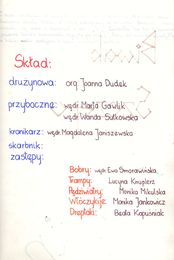 Skład:
drużynowa: org. Joanna Dudek
przyboczne: wędr. Marta Gawlik
wędr. Wanda Sułkowska
kronikarz: wędr. Magdalena Janiszewska
skarbnik:
zastępy:
Bobry: wędr. Ewa Smorawińska,
Trampy: Lucyna Knuplerz
Pędziwiatry: Monika Mikulska
Włóczykije: Monika Jankowicz
Dreptaki: Beata Kapuśniak